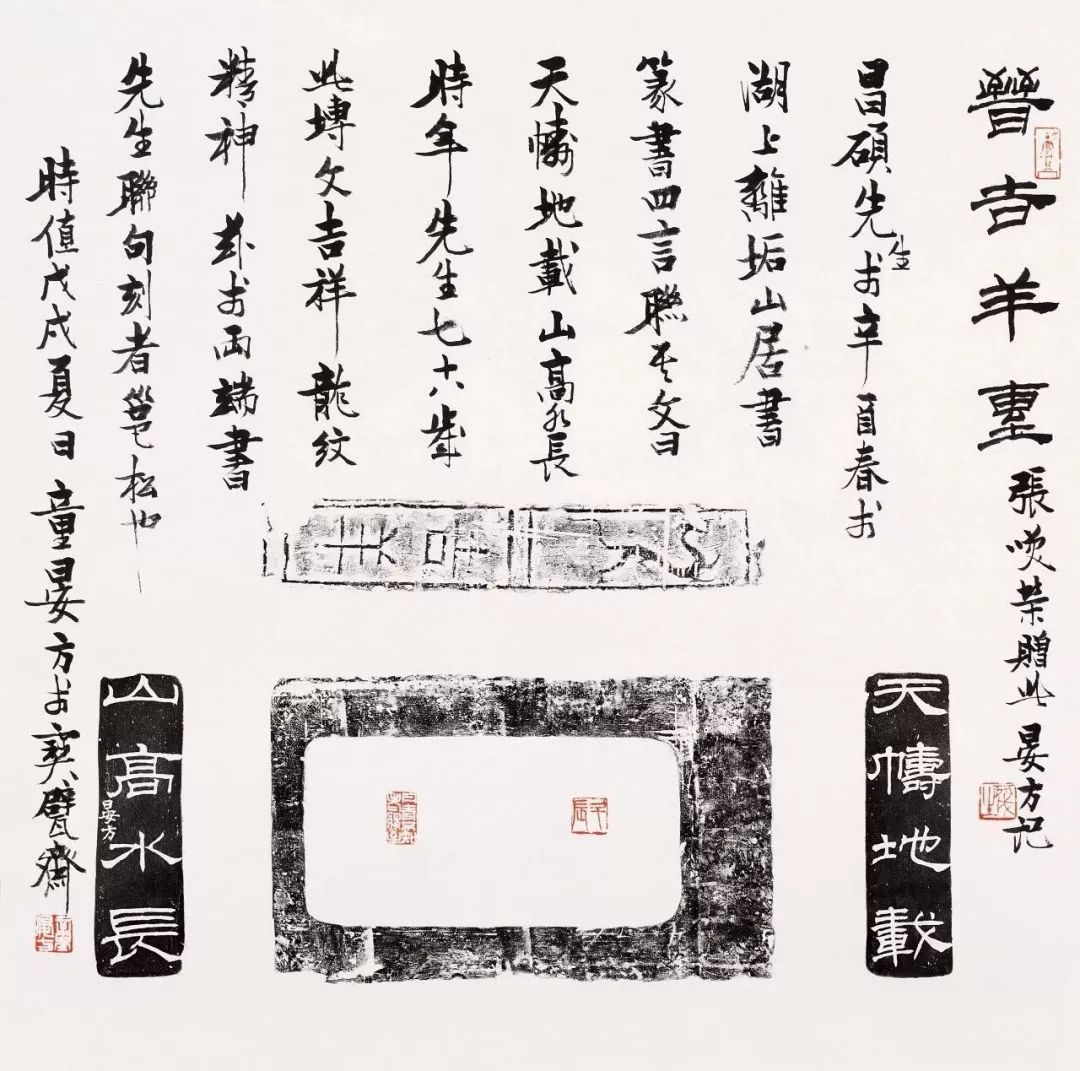 晉吉羊
張咲荣贈此 晏方記
昌碩先生於辛酉春於
湖上離垢山居書
篆書四言聯其文曰
天幬地載山高水長
時年先生七十八歲
此塼文吉祥龍紋
精神並於兩端書
先生聯句刻者邕松也
時值戊戌夏日 童晏方於寶甓齋
天幬地載
山高水長
晏方